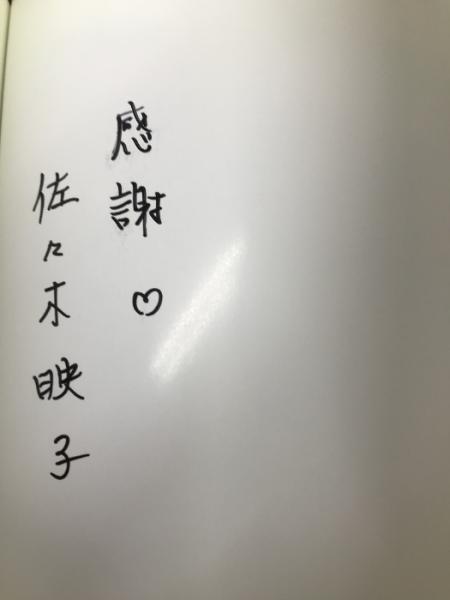 感謝♡
佐々木映子